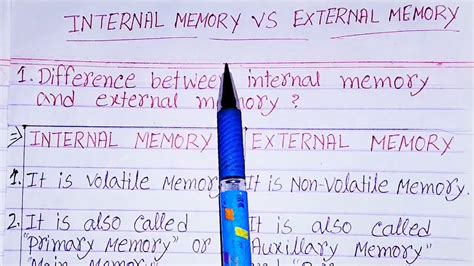 INTERNAL MEMORY VS EXTERNAL MEMORY
1. Difference between internal memory
and external memory ?
⇒ INTERNAL MEMORY EXTERNAL MEMORY
1. It is volatile Memory. It is Non-Volatile Memory.
2. It is also called It is also called
"Primary Memory" or "Auxillary Memory"
"Main Memory"